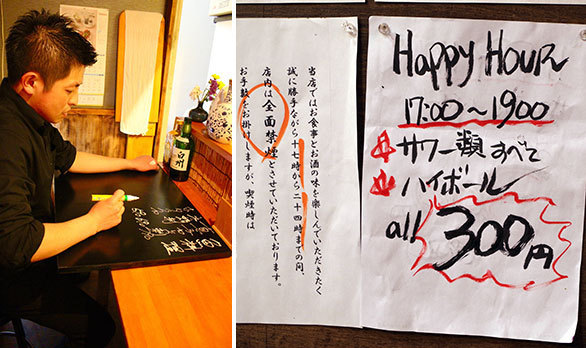 白州
当店ではお食事とお酒の味を楽しんでいただきたく
誠に勝手ながら十七時から二十四時までの間、
店内は全面禁煙とさせていただいております。
お手数をお掛けしますが、喫煙時は
HAPPY HOUR
17:00〜19:00
サワー類すべて
ハイボール
all 300円